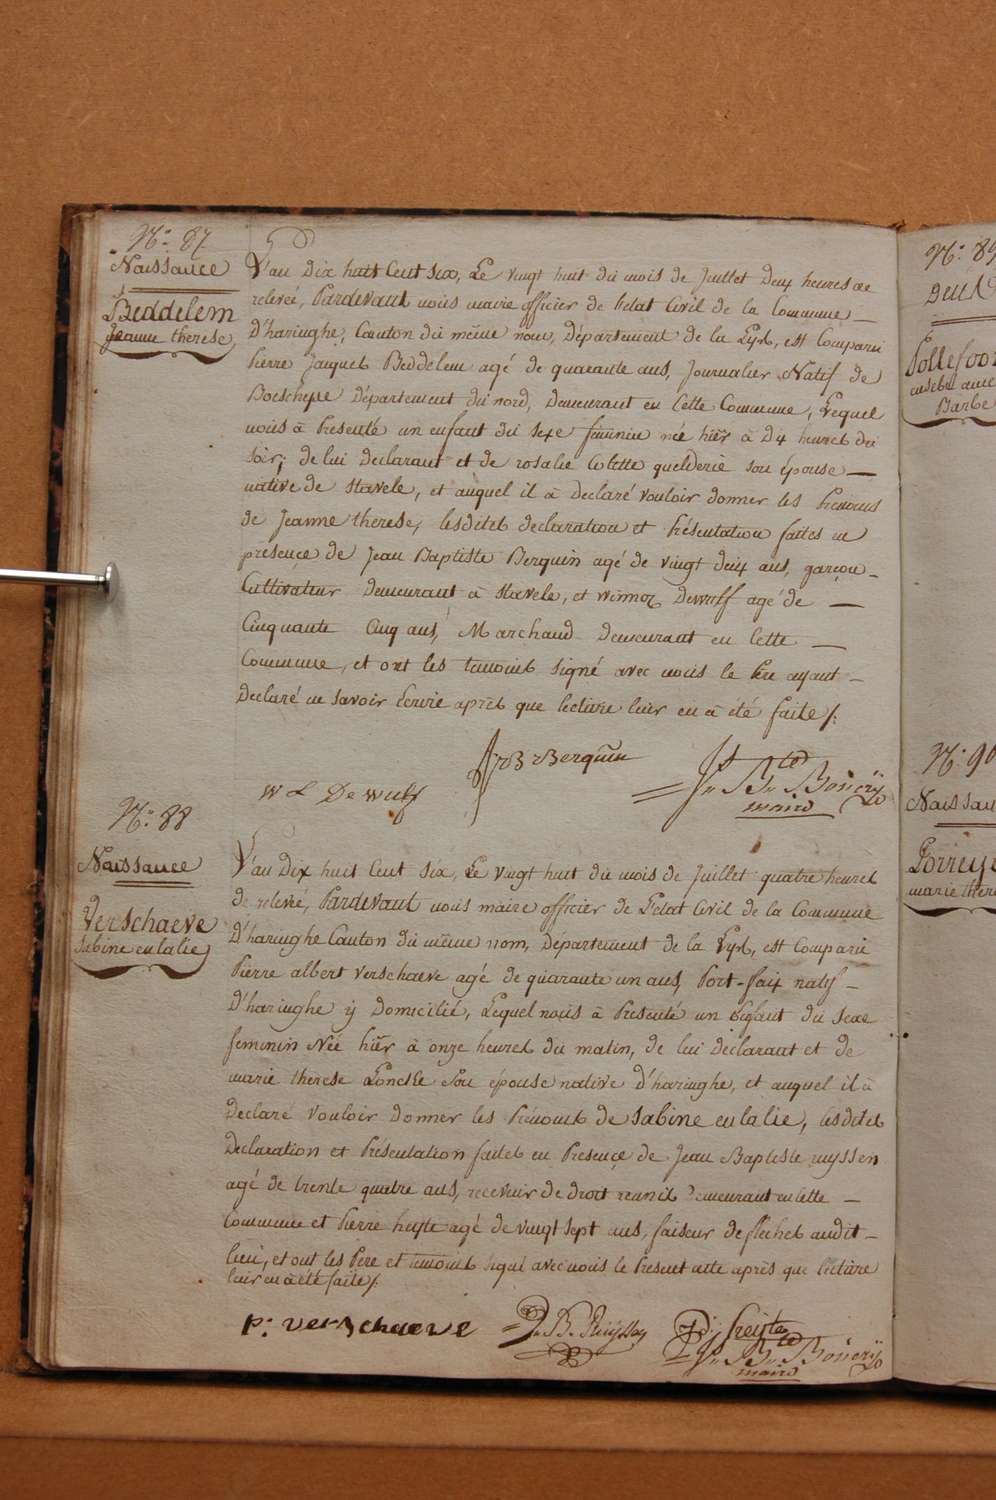 N.° 87
Naissance
Beddelem
Jeanne therese
L'an Dix huit Cent six, Le vingt huit du mois de Juillet Deux heures de
relevée, Pardevant nous maire officier de l'etat Civil de la Commune
D'haringhe, Canton du même nom, Département de la Lys, est Comparu
Pierre Jacques Beddelem agé de quarante ans, Journalier Natif de
Boeschepe Département du nord, Demeurant en Cette Commune, Lequel
nous à Presenté un enfant du sexe féminin née hier à Dix heures du
soir; de lui declarant et de rosalie Colette quelderie son épouse
native de Stavele, et auquel il à Declaré vouloir donner les Prenoms
de Jeanne therese, lesdites declaration et Présentation faites en
présence de Jean Baptiste Berquin agé de vingt deux ans, garçon
Cultivateur Demeurant à Stavele, et winnoc Dewulf agé de
Cinquante Cinq ans, Marchand Demeurant en Cette
Commune, et ont les temoins signé avec nous le Pere ayant
Declaré ne savoir Ecrire après que lecture leur en à été faite /:
JB Berquin
W L De Wulf
J.n B.te Bouerÿ
maire
N.° 88
Naissance
Verschaeve
Sabine eulalie
L'an Dix huit Cent six, Le vingt huit du mois de Juillet quatre heures
de relevée, Pardevant nous maire officier de L'etat Civil de la Commune
D'haringhe Canton du même nom, Département de la Lys, est Comparu
Pierre albert Verschaeve agé de quarante un ans, Port-faix natif
D'haringhe y Domicilié, Lequel nous à Presenté un Enfant du sexe
feminin Née hier à onze heures du matin, de lui declarant et de
marie therese son épouse native d'haringhe, et auquel il à
Declaré vouloir donner les Prénoms de Sabine eulalie, lesdites
Declaration et Présentation faites en Presence de Jean Baptiste ruyssen
agé de trente quatre ans, receveur de droit reunis Demeurant en Cette
Commune et Pierre heyte agé de vingt sept ans, faiseur de fleches audit
lieu, et ont les Pere et temoins signé avec nous le Present acte après que lecture
leur en à été faite /.
p: verschaeve
J. B. Ruyssen
P. J. heyte
J.n B.te Bouerÿ
maire
N.° 89
N.° 90
Naissan
marie there
Barbe